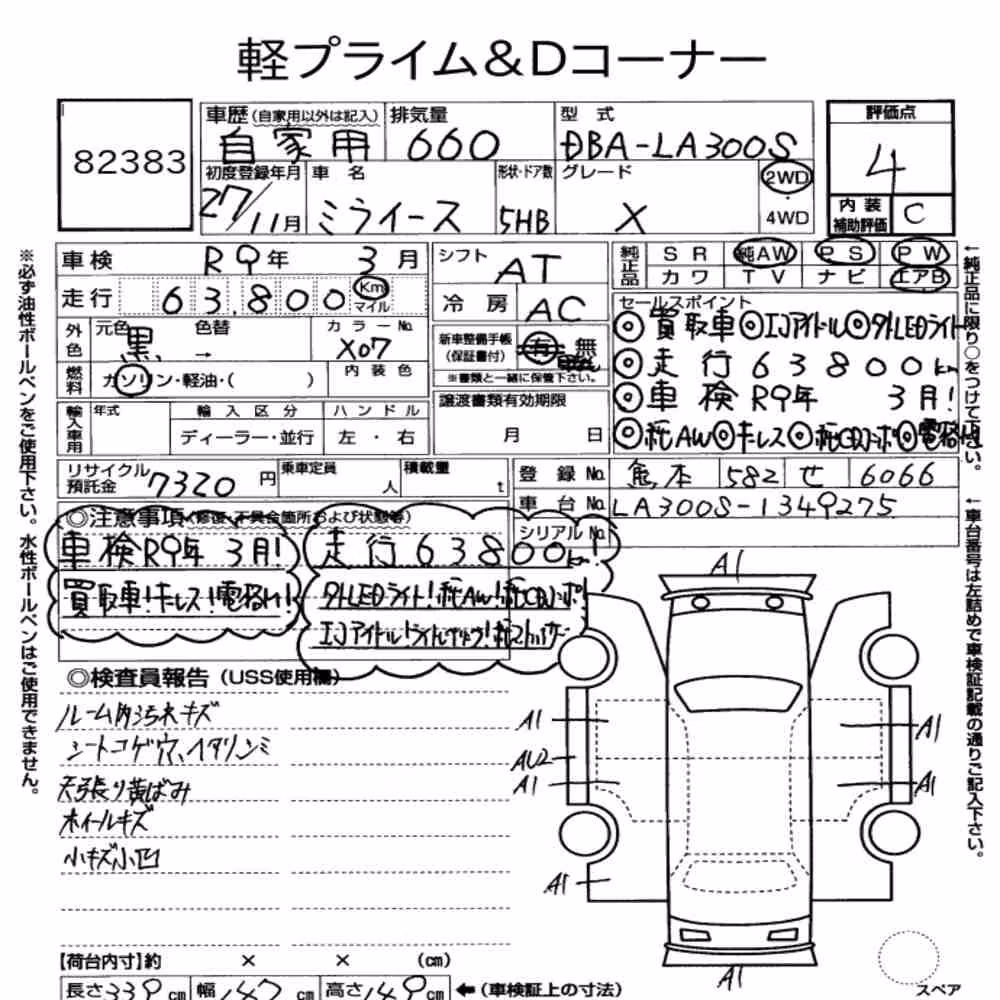 軽プライム&Dコーナー
82383
車歴(自家用以外は記入) 排気量 型式 評価点
自家用 660 DBA-LA300S 4
初度登録年月 車名 形状・ドア数 グレード 2WD
27/11月 ミライース 5HB X 4WD
内装補助評価 C
車検 R9年 3月 シフト AT
純正品 SR 純AW PS PW
カワ TV ナビ エアB
走行 63,800 Km マイル 冷房 AC
外色 元色 黒 色替 → カラーNo. X07
内装色
新車整備手帳(保証書付) 有 無
※書類と一緒に保管下さい。
燃料 ガソリン・軽油・( )
セールスポイント
◎買取車◎エコアイドル◎外LEDライト
◎走行63800km
◎車検R9年 3月!
輸入車用 年式 輸入区分 ハンドル
ディーラー・並行 左・右
譲渡書類有効期限
月 日
リサイクル預託金 7320円 乗車定員 人 積載量 t
登録No. 熊本 582 せ 6066
車台No. LA300S-1349275
シリアルNo.
◎注意事項(修復・不具合箇所および状態等)
車検R9年 3月! 走行63800km!
買取車!キーレス!
◎検査員報告(USS使用欄)
ルーム内汚れキズ
シートコゲ穴、イタリシミ
天張り黄ばみ
ホイールキズ
小キズ小凹
A1
A1 A1
AU2
A1 A1
A1
A1
【荷台内寸】約 × × (cm)
長さ339cm 幅147cm 高さ149cm ←(車検証上の寸法)
スペア
※必ず油性ボールペンをご使用下さい。水性ボールペンはご使用できません。
←純正品に限り○をつけて下さい。
←車台番号は左詰めで車検証記載の通りご記入下さい。